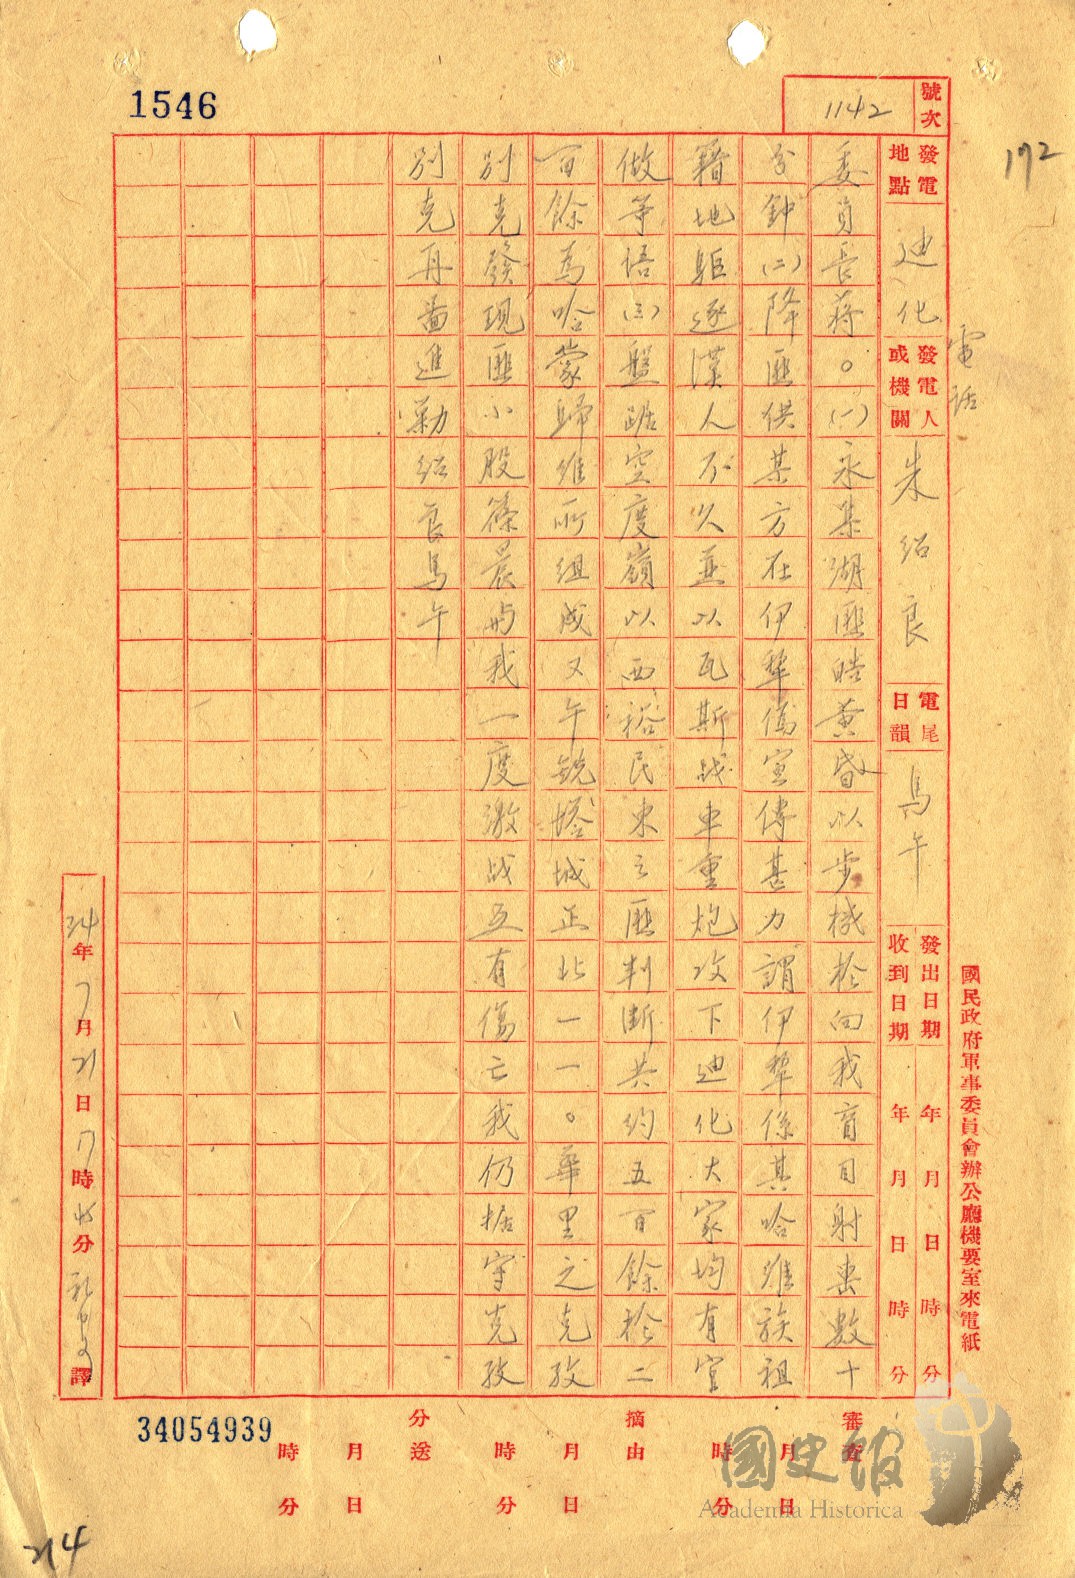 1546
號次 1142
172
發電地點 迪化
電話
發電人或機關 朱紹良
電尾日韻 馬午
發出日期 年 月 日 時 分
收到日期 年 月 日 時 分
國民政府軍事委員會辦公廳機要室來電紙
委員長蔣。(一)永集湖匪皓黃昏以步機槍向我盲目射擊數十
分鐘(二)降匪供某方在伊犂偽宣傳甚力謂伊犂係其哈維族祖
籍地驅逐漢人不久並以瓦斯战車重炮攻下迪化大家均有官
做等悟(三)盤踞空度嶺以西裕民東之匪判斷共約五百餘於二
百餘為哈蒙歸維所組成又午銳塔城正北一一。華里之克孜
別克發現匪小股篠晨與我一度激战互有傷亡我仍據守克孜
別克再啚進勦紹良馬午
34年7月21日17時45分 譯
34054939
審查 月 日 時 分
摘由 月 日 時 分
分送 月 日 時 分
國史館
Academia Historica
214